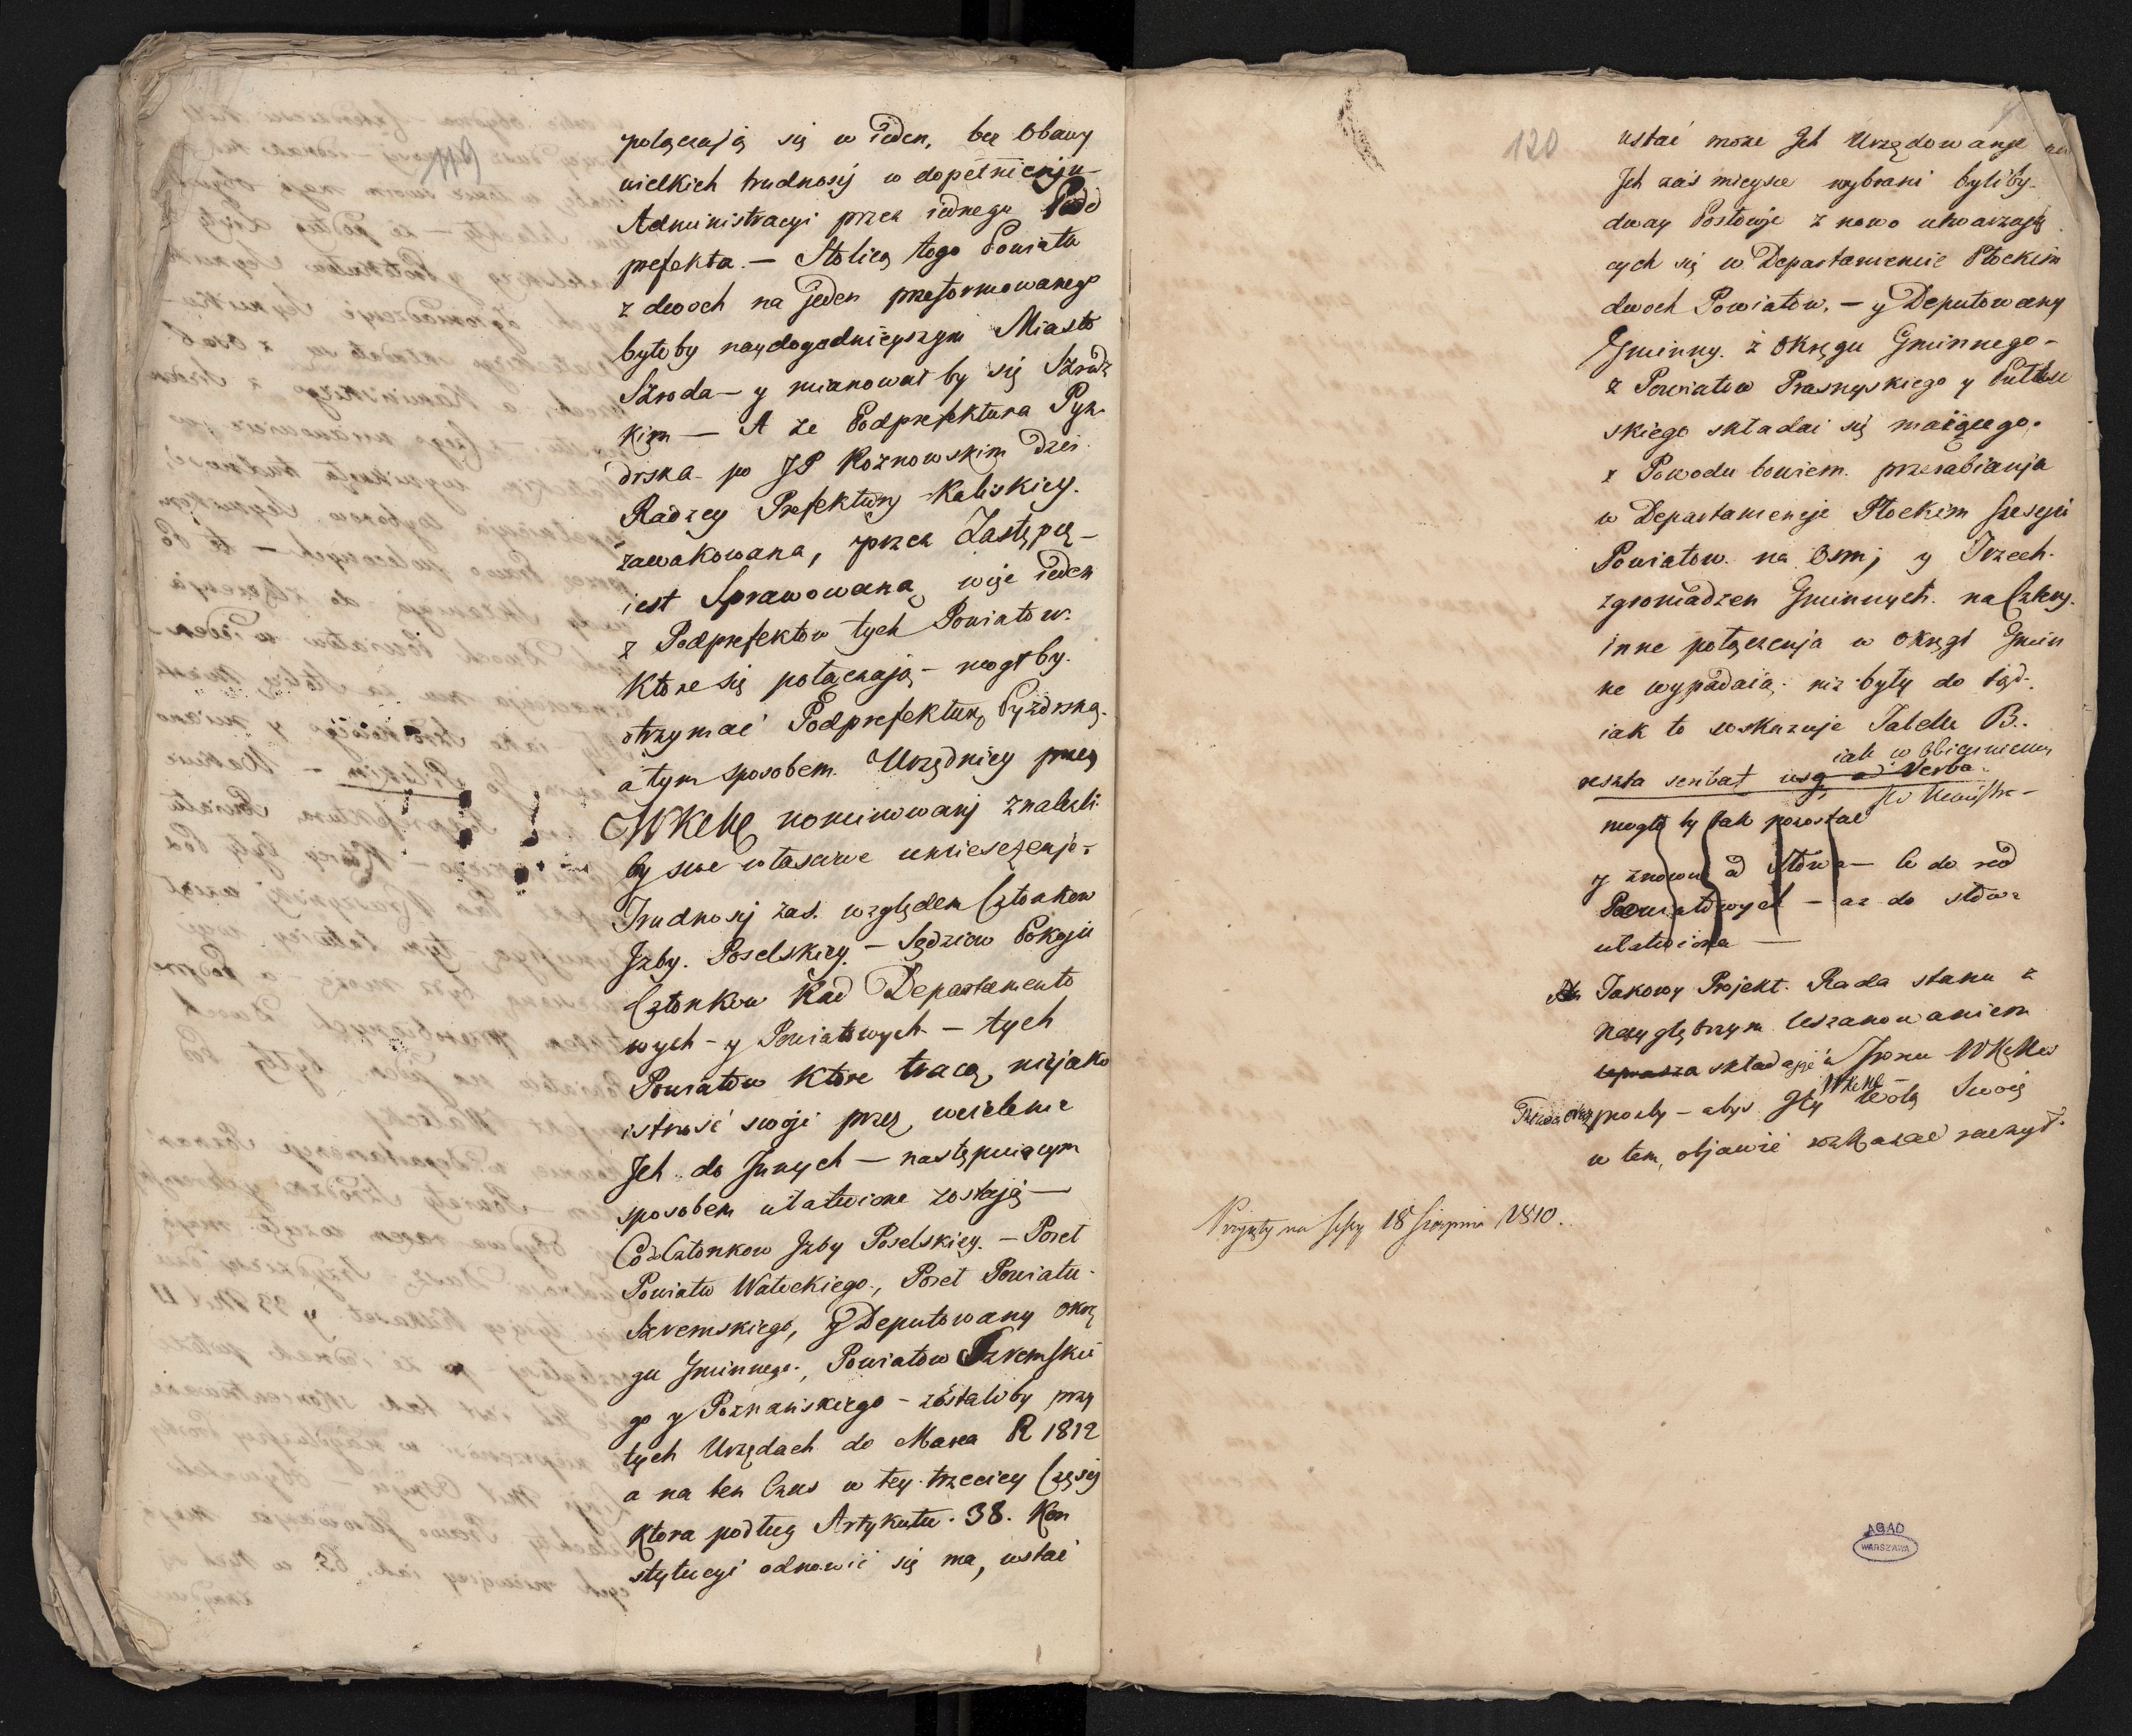 119
połączają się w ieden, bez obawy
wielkich trudnosy w dopełnieniu
Administracyi przez iednego Pod
prefekta. — Stolicą tego Powiatu
z dwoch na jeden przeformowanego
byłoby naydogodnieyszym Miasto
Szroda — y mianował by się Szrodz
kim — A że Podprefektura Pyz
drska po JP Koznowskim dziś
Radzcy Prefektury Kaliskiey.
zawakowana, przez Zastępcę —
iest Sprawowana, więc ieden
z Podprefektow tych Powiatow.
Ktore się połączają — mogłby
otrzymać Podprefekturę Pyzdrską.
a tym sposobem Urzędnicy przez
WKMę nominowani znaleźli
by swe własciwe umieszczenie.
Trudnosy zaś względem Członkow
Jzby Poselskiey. — Sędziow Pokoju
Członkow Rad Departamento
wych — y Powiatowych — tych
Powiatow Ktore tracą, niejako
istność swoję przez wcielenie
Jch do Jnnych — następuiącym
sposobem ułatwione zostają —
Co do Członkow Jzby Poselskiey. — Poseł
Powiatu Wałeckiego, Poseł Powiatu
Szremskiego, y Deputowany okrę
gu Gminnego, Powiatow Szremskie
go y Poznańskiego — zostaliby przy
tych Urzędach do Marca R 1812
a na ten Czas w tey trzeciey Częsy
Ktora podług Artykułu. 38. Kon
stytucyi odnowić się ma, ustać
120
ustać może Jch Urzędowanie na
Jch zaś mieysce wybrani byliby
dway Posłowie z nowo utwarzają
cych się w Departamencie Płockim
dwoch Powiatow, — y Deputowany
Gminny z okręgu Gminnego —
z Powiatow Prasnyskiego y Pułtus
skiego składać się maiącego.
z Powodu bowiem przerabiania
w Departamencie Płockim sześciu
Powiatow na Osm; y Trzech
zgromadzen Gminnych na Cztery.
inne połączenia w okręgi Gmin
ne wypadaią niz były do tąd.
iak to wskazuje Tabella B.
iak w Obiasnieniu
reszta scribat usq ad Verba
mogło by tak pozostać
y znowu od słowa — Co do rad
Powiatowych — az do słowa
ułatwiona —
Takowy Projekt Rada stanu z
naygłębszym uszanowaniem
składając u Tronu WKMci
prosby — abyś Jty WKMć wolą Swoią
w tem, objawić rozkazać raczył.
Przyjęty na sessyi 18 sierpnia 1810.
AGAD
WARSZAWA